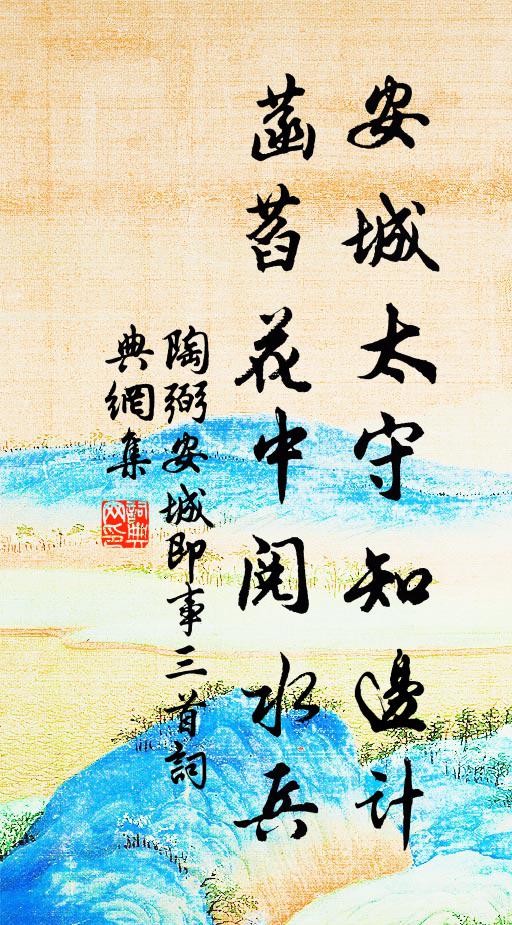 安城太守知邊計
菡萏花中閱水兵
陶弼安城即事三首詞
典網集
詞典網印